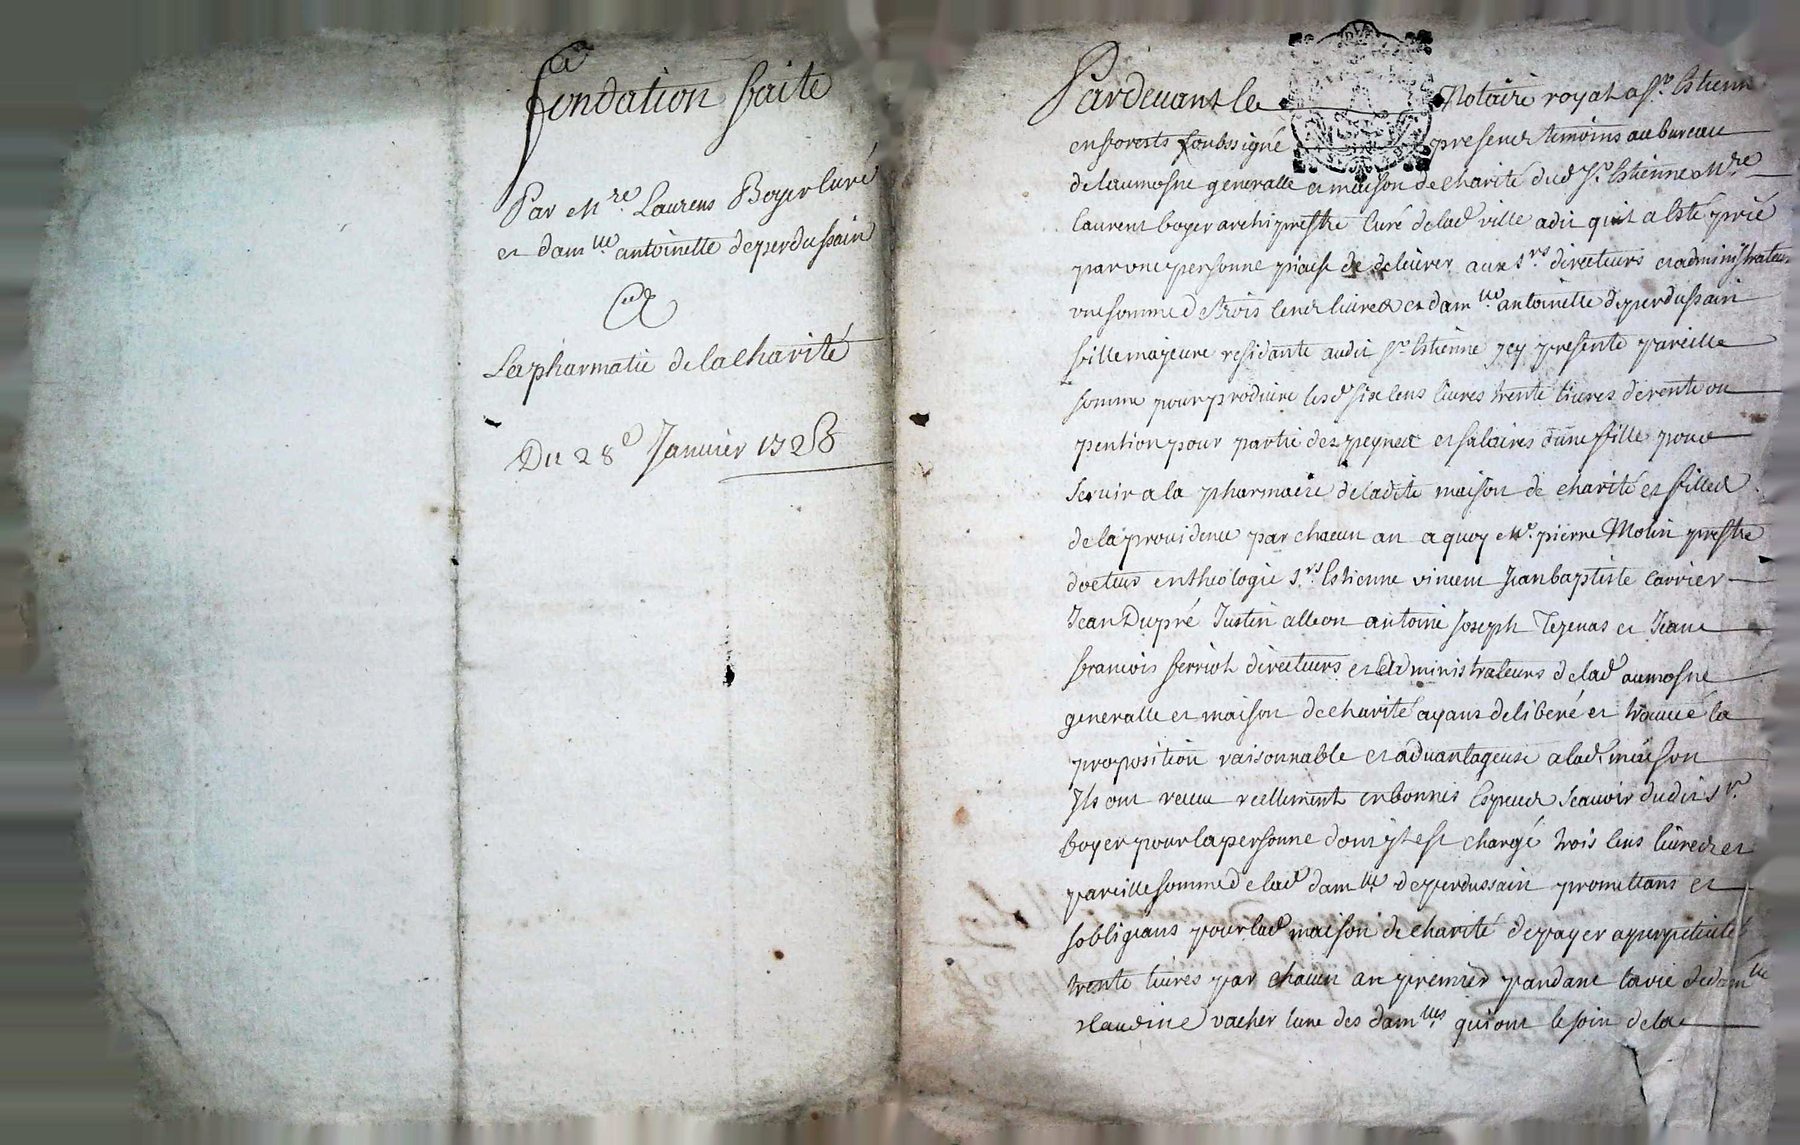 fondation faite
Par M.re Laurens Boyer Curé
et dam.lle antoinette deperdussain
a
La pharmatie de la charité
Du 28e Janvier 1728
Pardevant le Notaire royal a St. Estienne
en forests soubssigné presens temoins au bureau
de laumosne generalle et maison de charité dud. St. Estienne Mre.
Laurent boyer archiprestre Curé de lad. ville a dit quil a esté prié
par une personne pieuse de delivrer aux Srs. directeurs et administrateurs
une somme de trois cens livres et dam.lle antoinette deperdussain
fille majeure residante audit St. Estienne ycy presente pareille
somme pour produire lesd. six cens livres trente livres de rente ou
pention pour partie des peynes et salaires d'une fille pour
servir a la pharmacie de ladite maison de charité et filles
de la providence par chacun an a quoy Me. pierre Molin prestre
docteur en theologie Srs. Estienne vincent Jean baptiste Carrier
Jean Dupré Justin alleon antoine Joseph Tezenas et Jean
francois ferriol directeurs et administrateurs de lad. aumosne
generalle et maison de charité ayans deliberé et trouvé la
proposition raisonnable et advantageuse a lad. maison
Ils ont receu reellement en bonnes Especes scavoir dudit Sr.
boyer pour la personne dont yl est chargé trois cens livres et
pareille somme de lad. dam.lle deperdussain promettans et
sobligeans pour lad. maison de charité de payer a perpetuité
trente livres par chacun an premier pandant la vie de dam.lle
Claudine vacher lune des dam.lles qui ont le soin de la